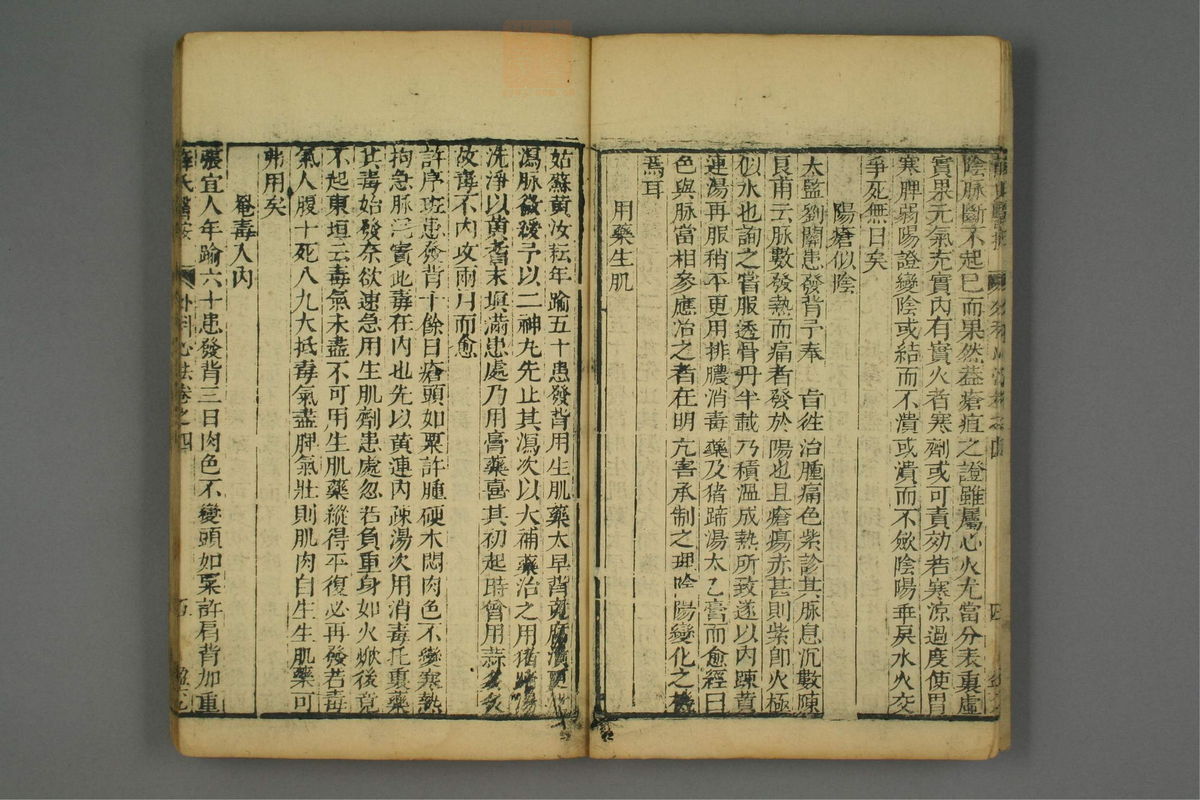 陰脉斷不起已而果然葢瘡疽之證雖屬心火尤當分表裏虛
實果元氣充實內有實火者寒劑或可責効若寒凉過度使胃
寒脾弱陽證變陰或結而不潰或潰而不斂陰陽乖戾水火交
爭死無日矣
陽瘡似陰
太監劉關患發背予奉 旨徃治腫痛色紫診其脉息沉數陳
良甫云脉數發熱而痛者發於陽也且瘡瘍赤甚則紫即火極
似水也詢之嘗服透骨丹半載乃積溫成熱所致遂以內踈黄
連湯再服稍平更用排膿消毒藥及猪蹄湯太乙膏而愈經曰
色與脉當相參應治之者在明亢害承制之理陰陽變化之機
焉耳
用藥生肌
姑蘇黄汝耘年踰五十患發背用生肌藥太早背
瀉脉微緩予以二神丸先止其瀉次以大補藥治之用猪
洗淨以黄耆末塡滿患處乃用膏藥喜其初起時曾用蒜灸
故毒不內攻兩月而愈
許序班患發背十餘日瘡頭如粟許腫硬木悶肉色不變寒熱
拘急脉沉實此毒在內也先以黄連內疎湯次用消毒托裏藥
其毒始發奈欲速急用生肌劑患處忽若負重身如火焮後竟
不起東垣云毒氣未盡不可用生肌藥縱得平復必再發若毒
氣入腹十死八九大抵毒氣盡脾氣壯則肌肉自生生肌藥可
弗用矣
奄毒入內
張宜人年踰六十患發背三日肉色不變頭如粟許肩背加重
薛氏醫案 外科心法卷之四